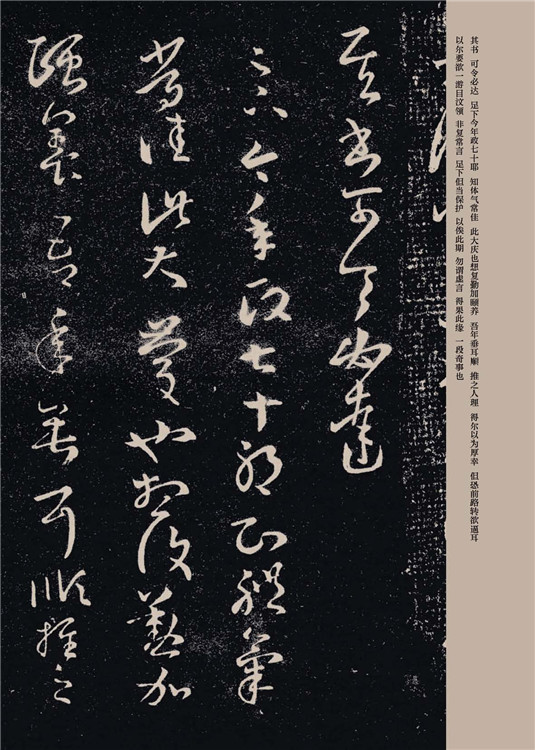 其书 可令必达 足下今年政七十耶 知体气常佳 此大庆也想复勤加颐养 吾年垂耳顺 推之人理 得尔以为厚幸 但恐前路转欲逼耳
以尔要欲一游目汶领 非复常言 足下但当保护 以俟此期 勿谓虚言 得果此缘 一段奇事也
其書可令必達
足下今年政七十耶知體氣
常佳此大慶也想復懃加
頤養吾年垂耳順推之